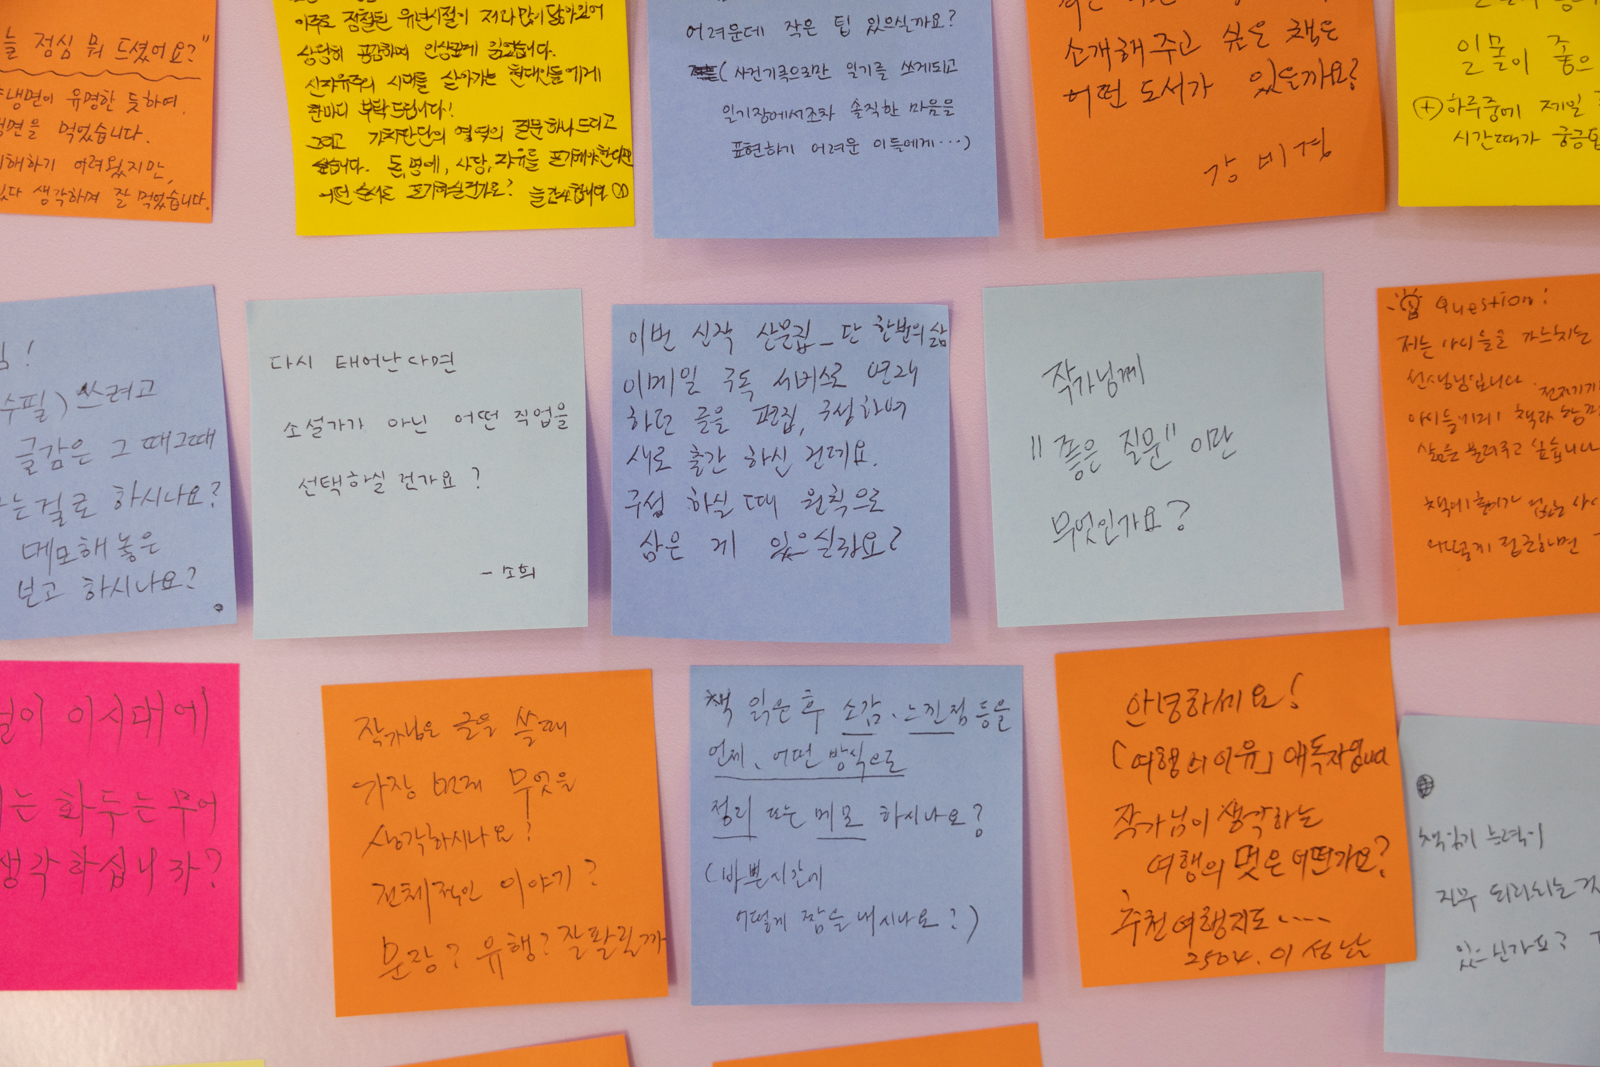 늘 점심 뭐 드셨어요?"
냉면이 유명한 듯하여.
냉면을 먹었습니다.
해하기 어려웠지만,
있다 생각하며 잘 먹었습니다.
이주로 점철된 유년시절이 저와 많이 닮아있어
상당히 공감하며 인상깊게 읽었습니다.
신자유주의 시대를 살아가는 현대인들에게
한마디 부탁드립니다!
그리고 가치판단의 영역의 질문 하나 드리고
싶습니다. 돈, 명예, 사랑, 자유를 포기해야 한다면
어떤 순서로 포기하실건가요? 늘 감사합니다
어려운데 작은 팁 있으실까요?
(사건기록으로만 일기를 쓰게되고
일기장에서조차 솔직한 마음을
표현하기 어려운 이들에게...)
소개해주고 싶은 책은
어떤 도서가 있을까요?
강비경
인물이 좋으
⊕하루중에 제일
시간때가 궁금
!
수필) 쓰려고
글감은 그때그때
는걸로 하시나요?
메모해놓은
보고 하시나요?
다시 태어난다면
소설가가 아닌 어떤 직업을
선택하실 건가요?
- 소희
이번 신작 산문집_단 한번의 삶
이메일 구독 서비스로 연재
하던 글을 편집, 구성하여
새로 출간 하신 건데요.
구성 하실 때 원칙으로
삼은 게 있으실까요?
작가님께
"좋은 질문"이란
무엇인가요?
Question!
저는 아이들을 가르치는
선생님입니다.
아이들에게 책과 함께
삶을 물려주고 싶습니다
책에 흥미가 없는
어떻게 접근하면
이 시대에
는 화두는 무어
생각하십니까?
작가님은 글을 쓸 때
가장 먼저 무엇을
생각하시나요?
전체적인 이야기?
문장? 유행? 잘팔릴까
책 읽은 후 소감, 느낀점 등을
언제, 어떤 방식으로
정리 또는 메모 하시나요?
(바쁜시간에
어떻게 짬을 내시나요?)
안녕하세요!
「여행의 이유」 애독자입니다
작가님이 생각하는
여행의 멋은 어떤가요?
추천여행지도.....
2504. 이성남
책읽기 능력이
자꾸 퇴화되는거
있으신가요?